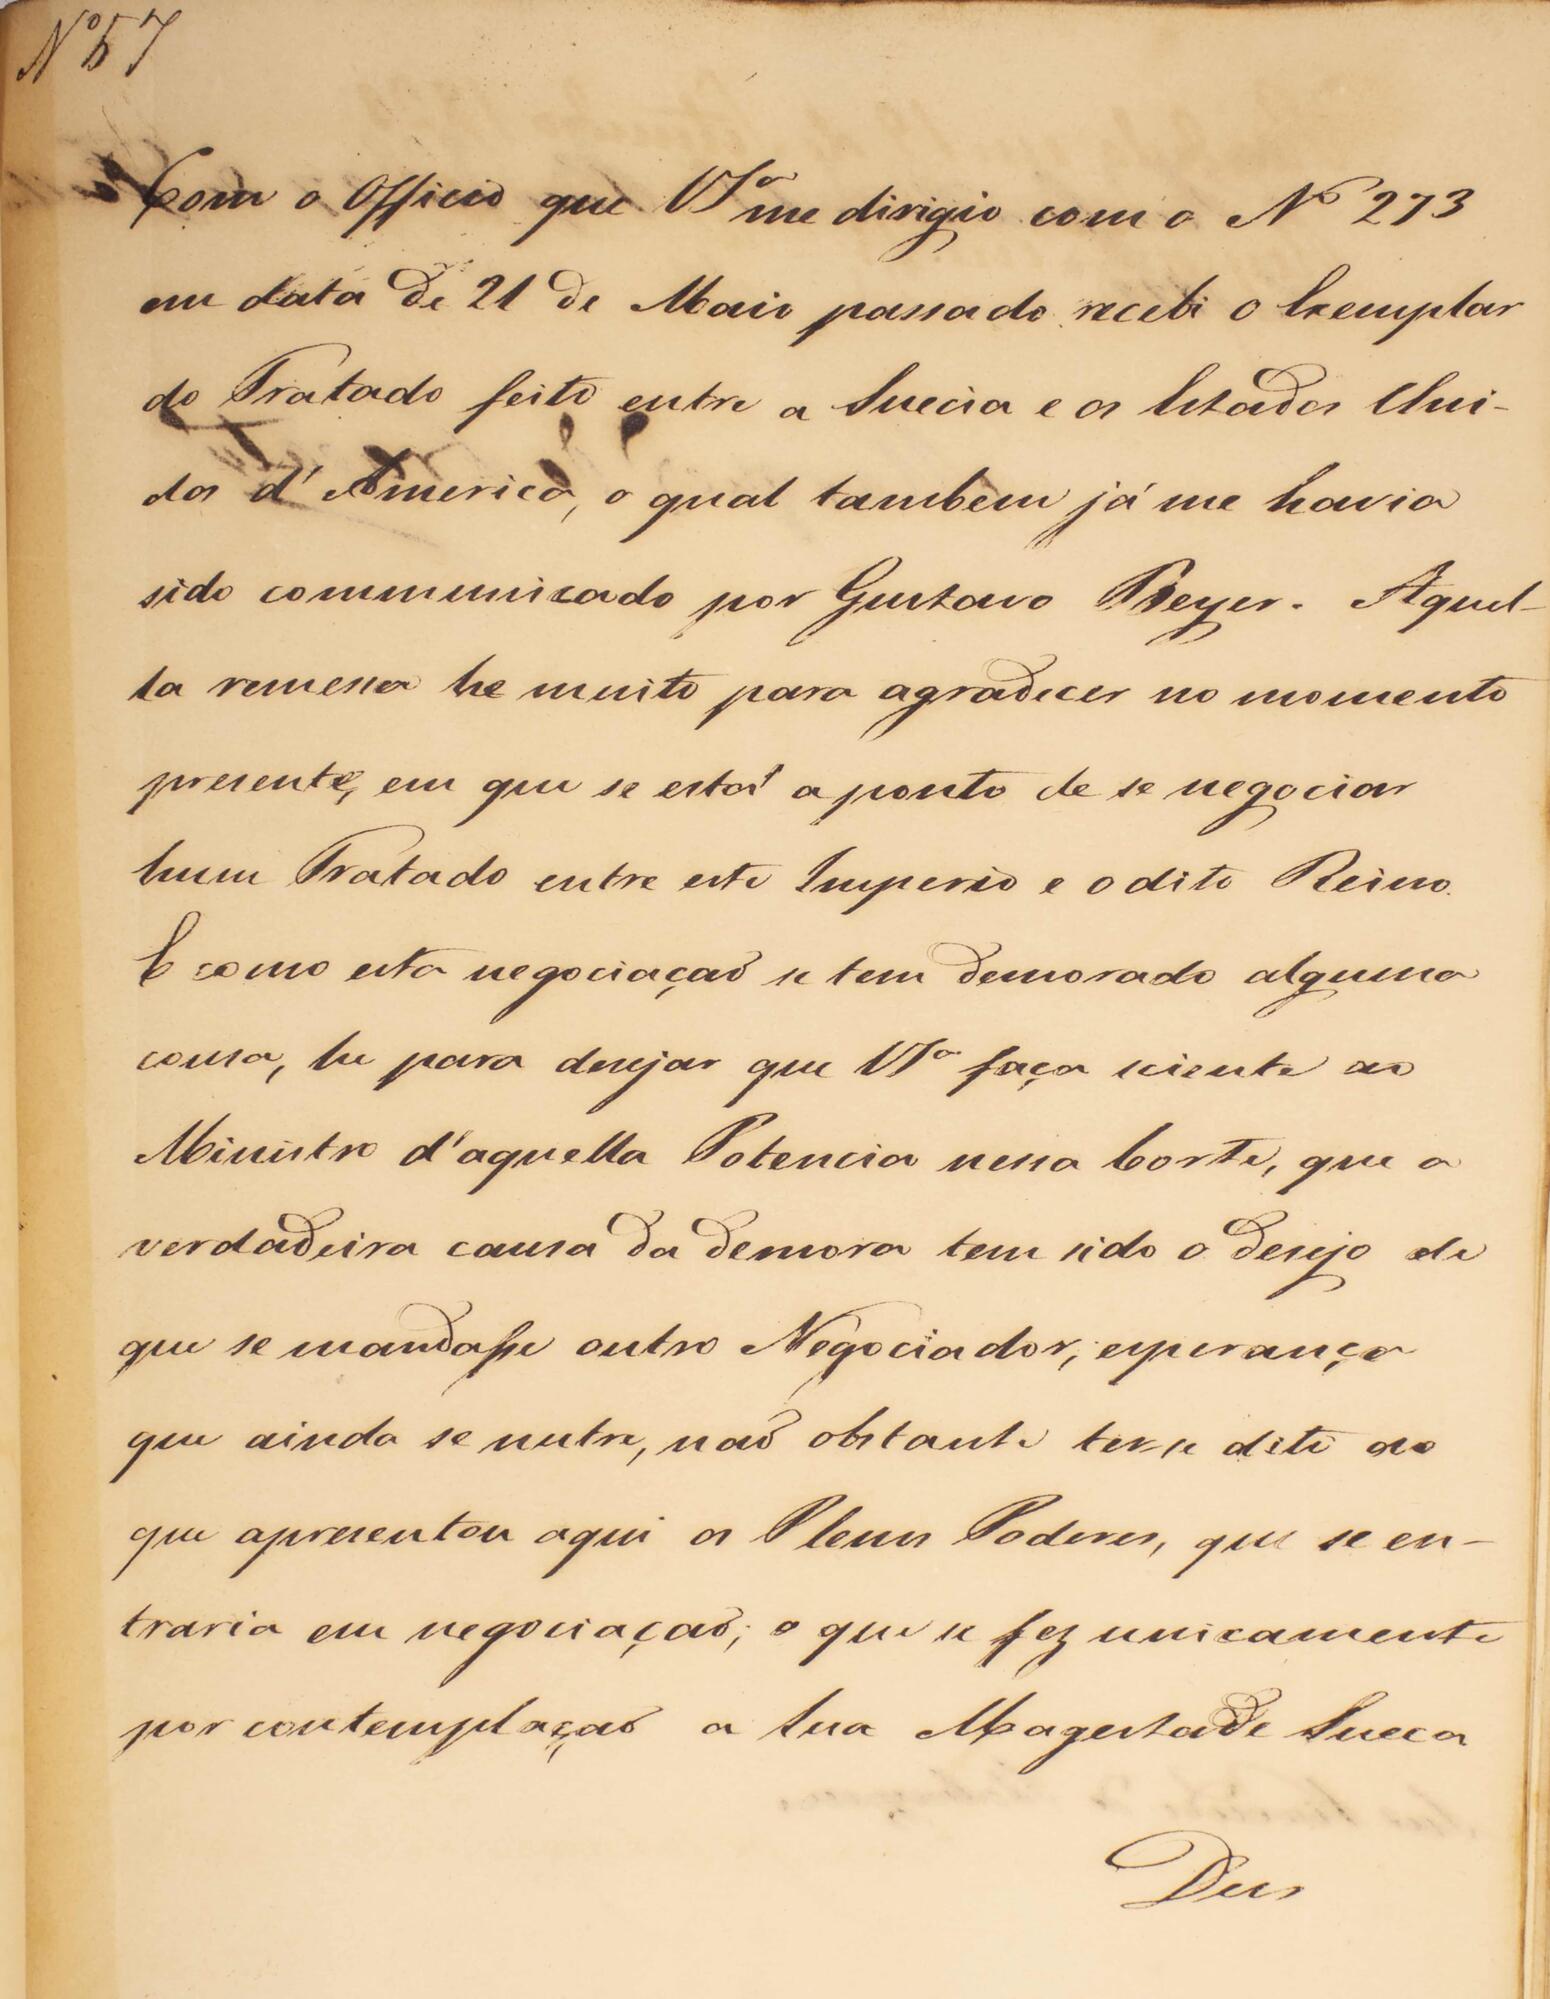 Nº 57
Com o Officio que VSª me dirigio com o Nº 273
em data de 21 de Maio passado recebi o Exemplar
do Tratado feito entre a Suecia e os Estados Uni-
dos d'America, o qual tambem já me havia
sido communicado por Gustavo Beyer. Aquel-
la remessa he muito para agradecer no momento
presente, em que se está a ponto de se negociar
hum Tratado entre este Imperio e o dito Reino.
E como esta negociaçaõ se tem demorado alguma
cousa, he para desejar que VSª faça sciente ao
Ministro d'aquella Potencia nessa Corte, que a
verdadeira causa da demora tem sido o desejo de
que se mandasse outro Negociador, esperança
que ainda se nutre, naõ obstante ter-se dito ao
que apresentou aqui os Plenos Poderes, que se en-
traria em negociaçaõ; o que se fez unicamente
por contemplaçaõ a Sua Magestade Sueca
Deus